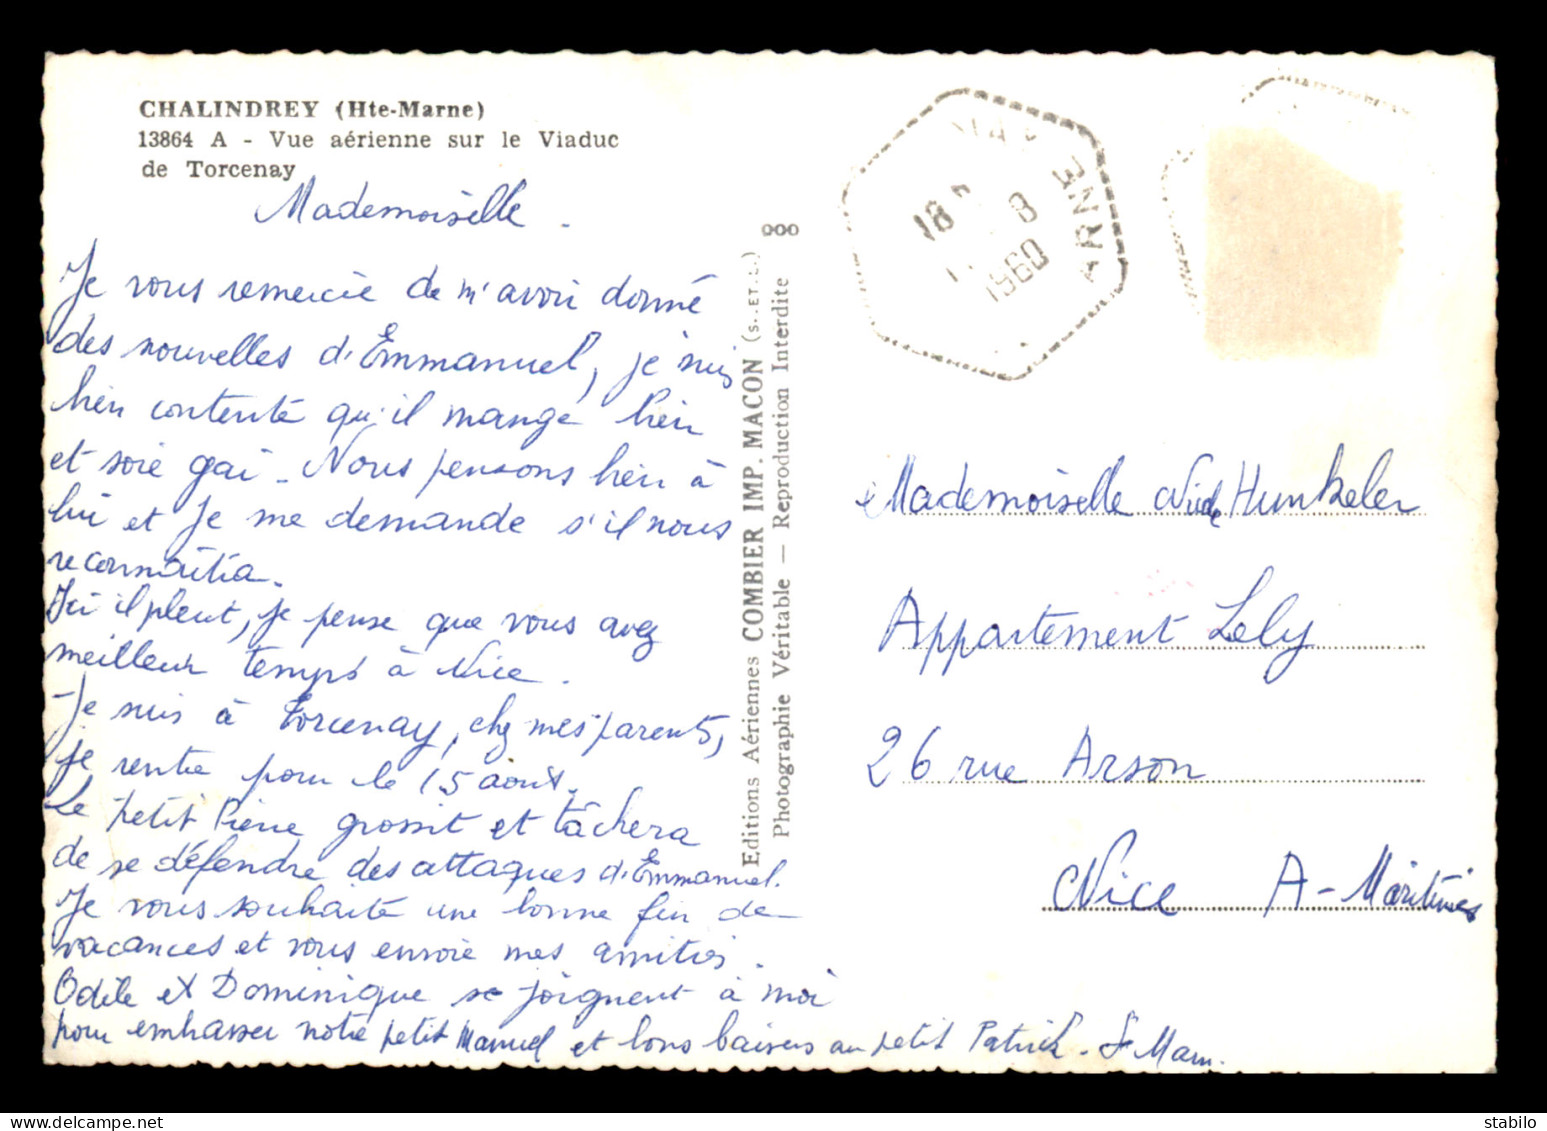 CHALINDREY (Hte-Marne)
13864 A - Vue aérienne sur le Viaduc
de Torcenay
Mademoiselle.
Je vous remercie de m'avoir donné
des nouvelles d'Emmanuel, je suis
bien contente qu'il mange bien
et soie gai - Nous pensons bien à
lui et je me demande s'il nous
reconnaîtra.
Ici il pleut, je pense que vous avez
meilleur temps à Nice.
Je suis à Torcenay, chez mes parents,
je rentre pour le 15 août.
Le petit Pierre grossit et tâchera
de se défendre des attaques d'Emmanuel.
Je vous souhaite une bonne fin de
vacances et vous envoie mes amitiés.
Odile et Dominique se joignent à moi
pour embrasser notre petit Manuel et bons baisers au petit Patrick -
Editions Aériennes COMBIER IMP. MACON (S.-ET-L.)
Photographie Véritable — Reproduction Interdite
18
8
1960
ARNE
Mademoiselle Hunkeler
Appartement Lely
26 rue Arson
Nice A-Maritimes
stabilo